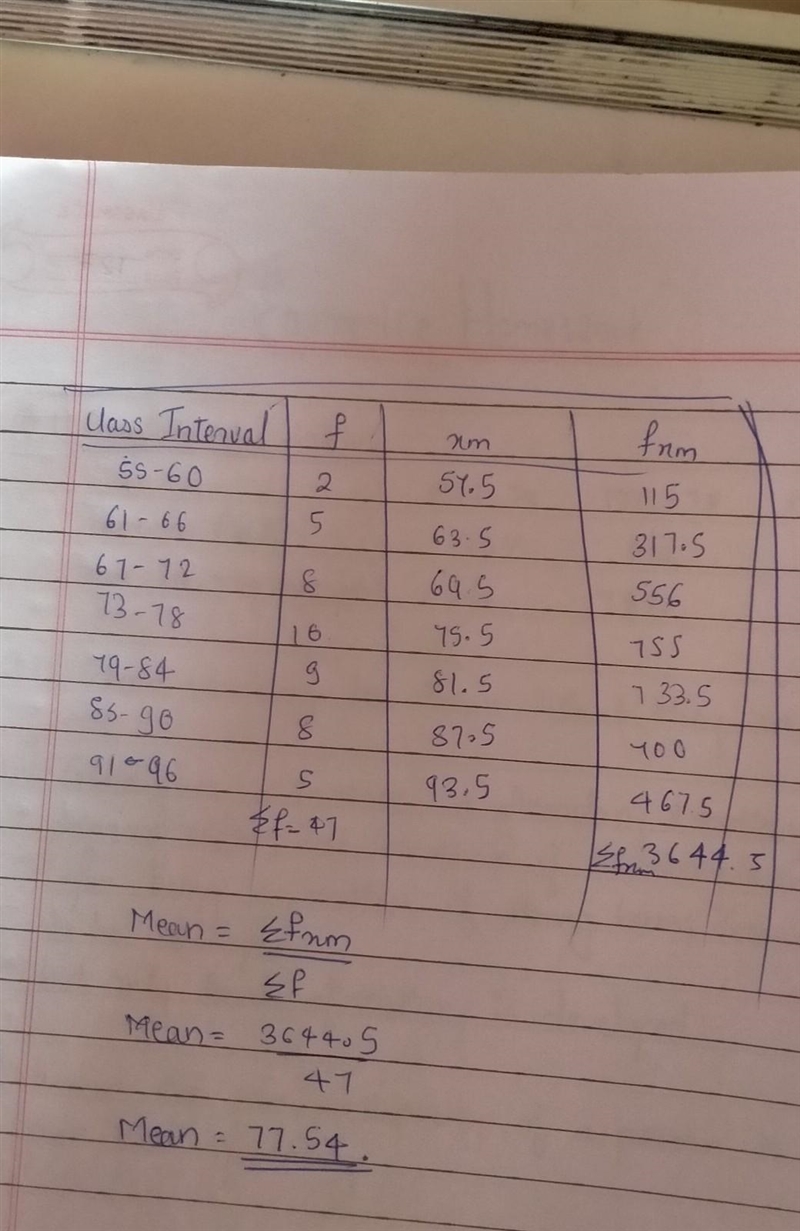 Class Interval f xm fxm
55-60 2 57.5 115
61-66 5 63.5 317.5
67-72 8 69.5 556
73-78 10 75.5 755
79-84 9 81.5 733.5
85-90 8 87.5 700
91-96 5 93.5 467.5
Σf=47 Σfxm 3644.5
Mean = Σfxm
Σf
Mean = 3644.5
47
Mean = 77.54.